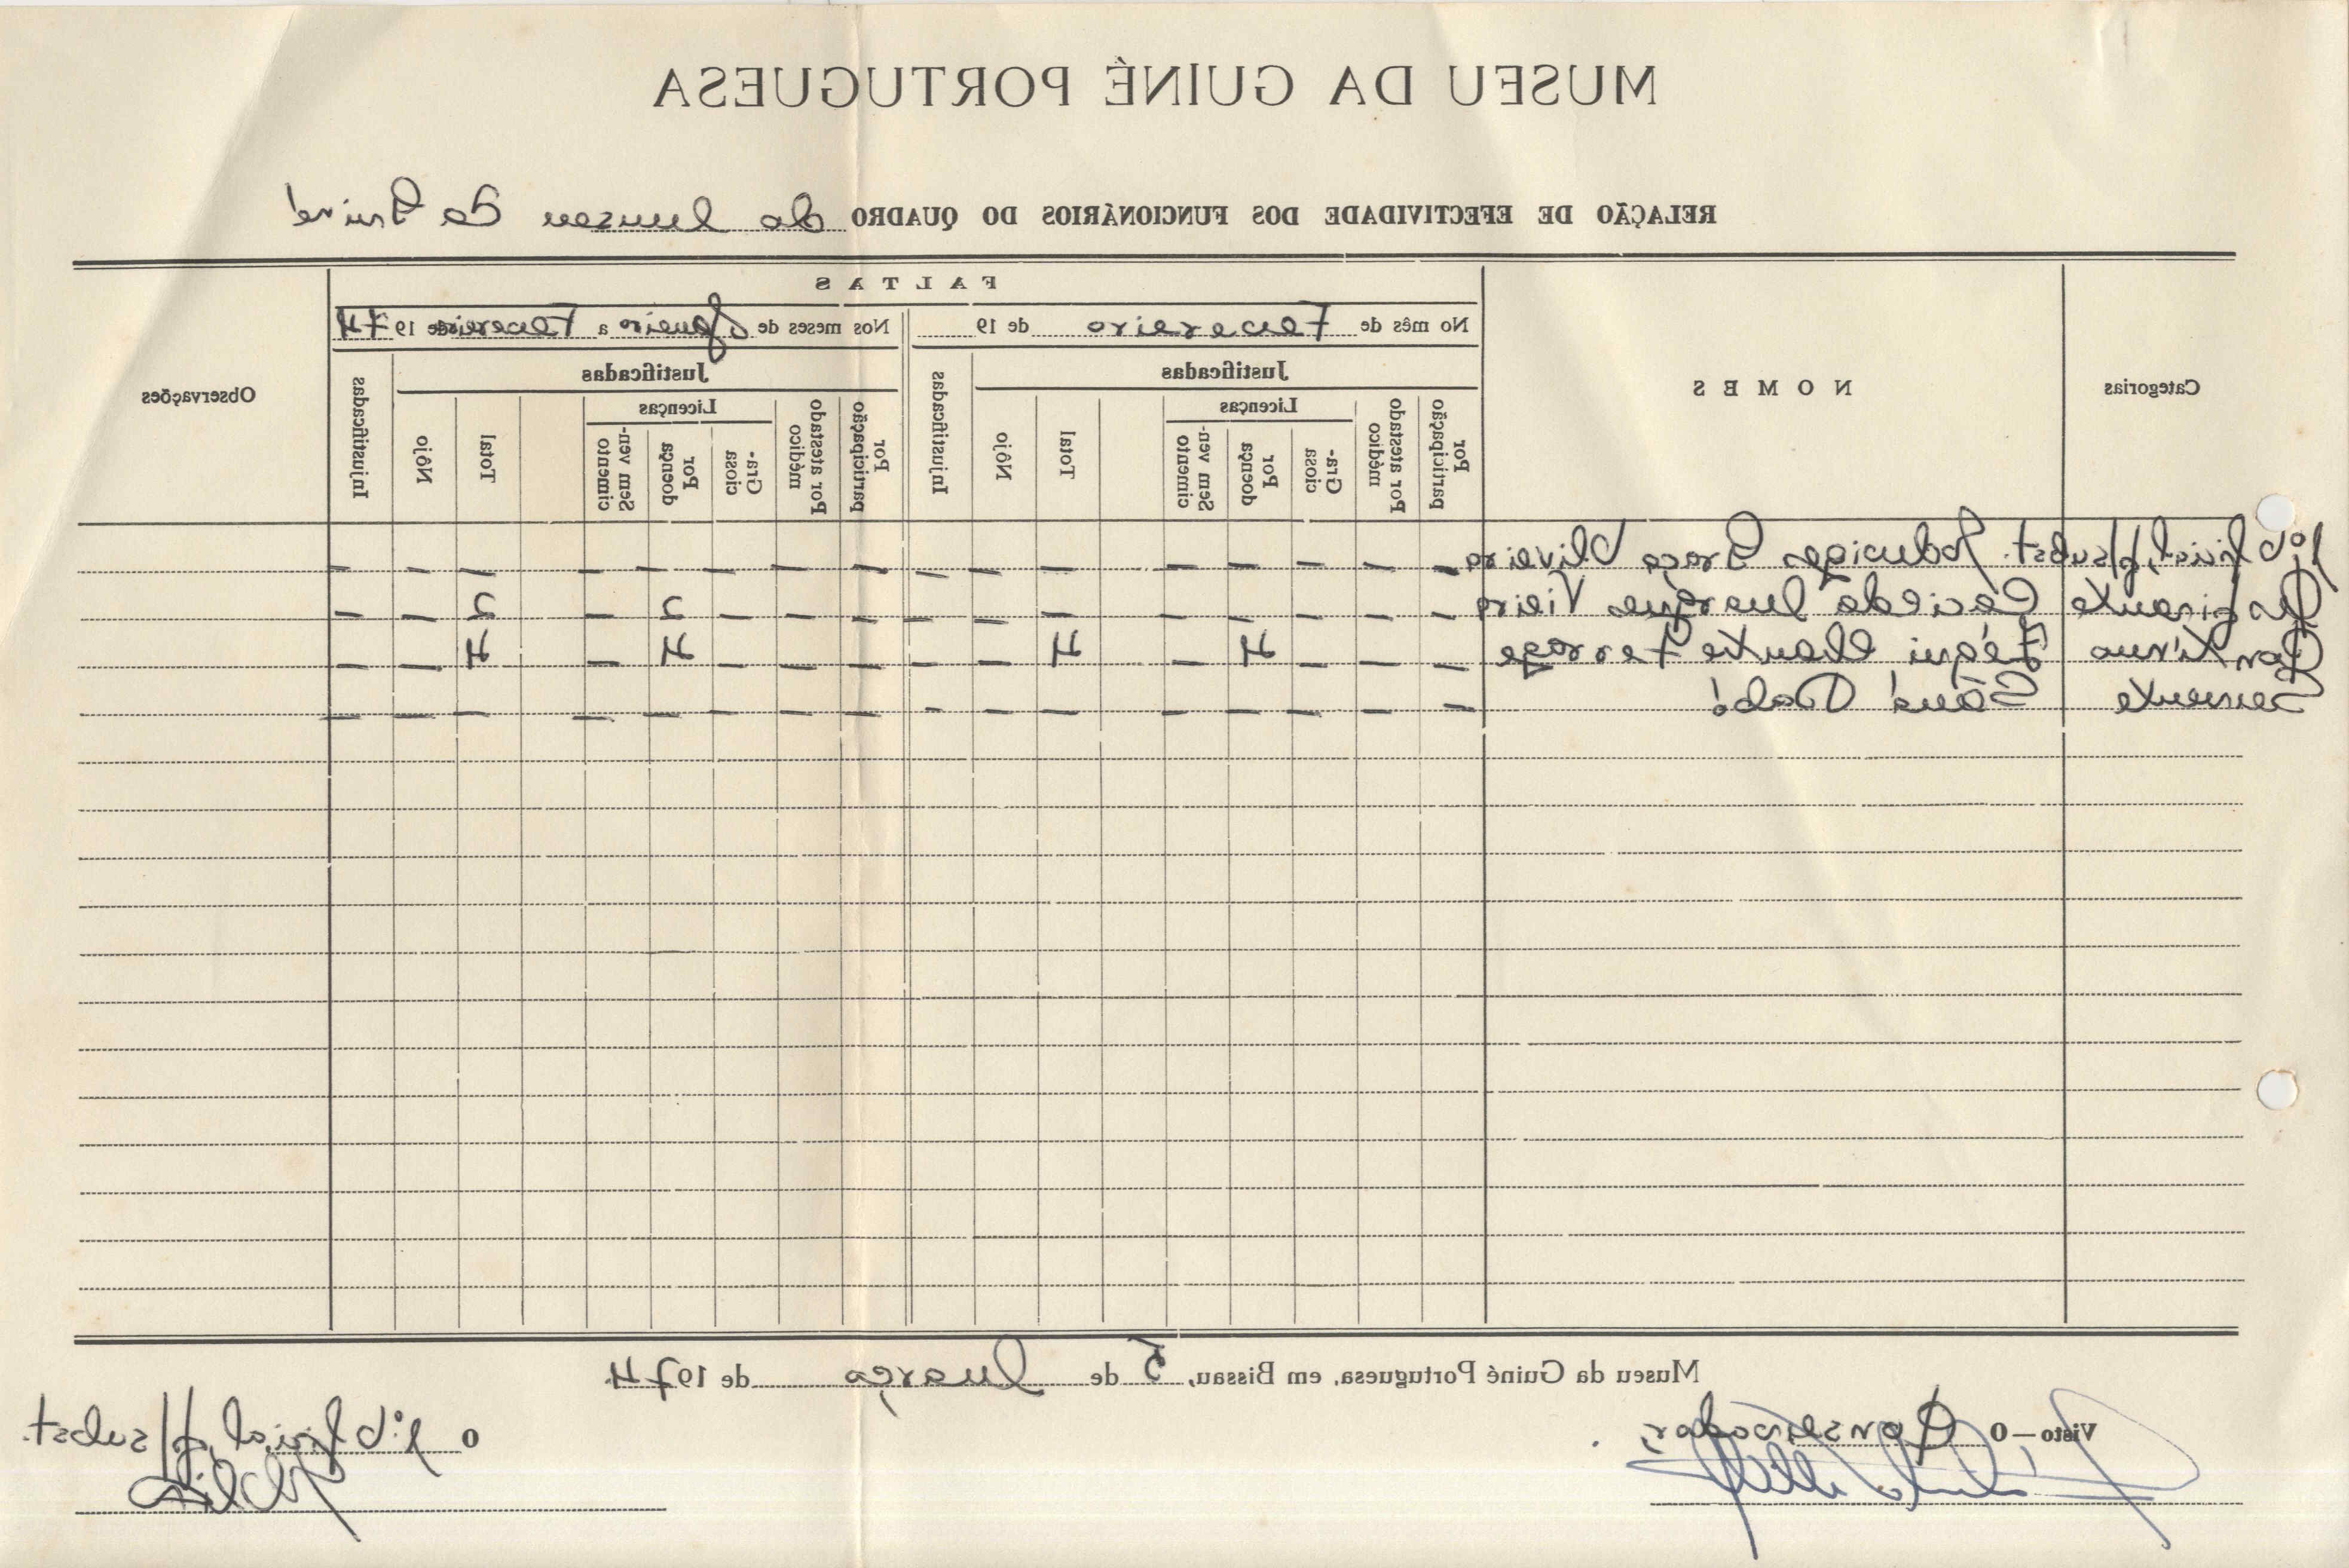 MUSEU DA GUINÉ PORTUGUESA
RELAÇÃO DE EFECTIVIDADE DOS FUNCIONÁRIOS DO QUADRO do Museu da Guiné
Categorias
NOMES
FALTAS
Observações
No mês de Fevereiro de 19
Nos meses de Janeiro a Fevereiro de 19 74
Justificadas
Injustificadas
Justificadas
Injustificadas
Por participação
Por atestado médico
Licenças
Gra-ciosa
Por doença
Sem ven-cimento
Total
Nôjo
Por participação
Por atestado médico
Licenças
Gra-ciosa
Por doença
Sem ven-cimento
Total
Nôjo
1.º Oficial, p/subst. Graça Oliveira — — — — — — — — — — — — — — — —
Vigilante Vieira — — — — — — — — — — — 2 — 2 — —
Contínuo — — — 4 — 4 — — — — — 4 — 4 — —
Servente — — — — — — — — — — — — — — — —
Museu da Guiné Portuguesa, em Bissau, 5 de Março de 1974.
Visto — O Conservador,
O 1.º Oficial, p/subst.